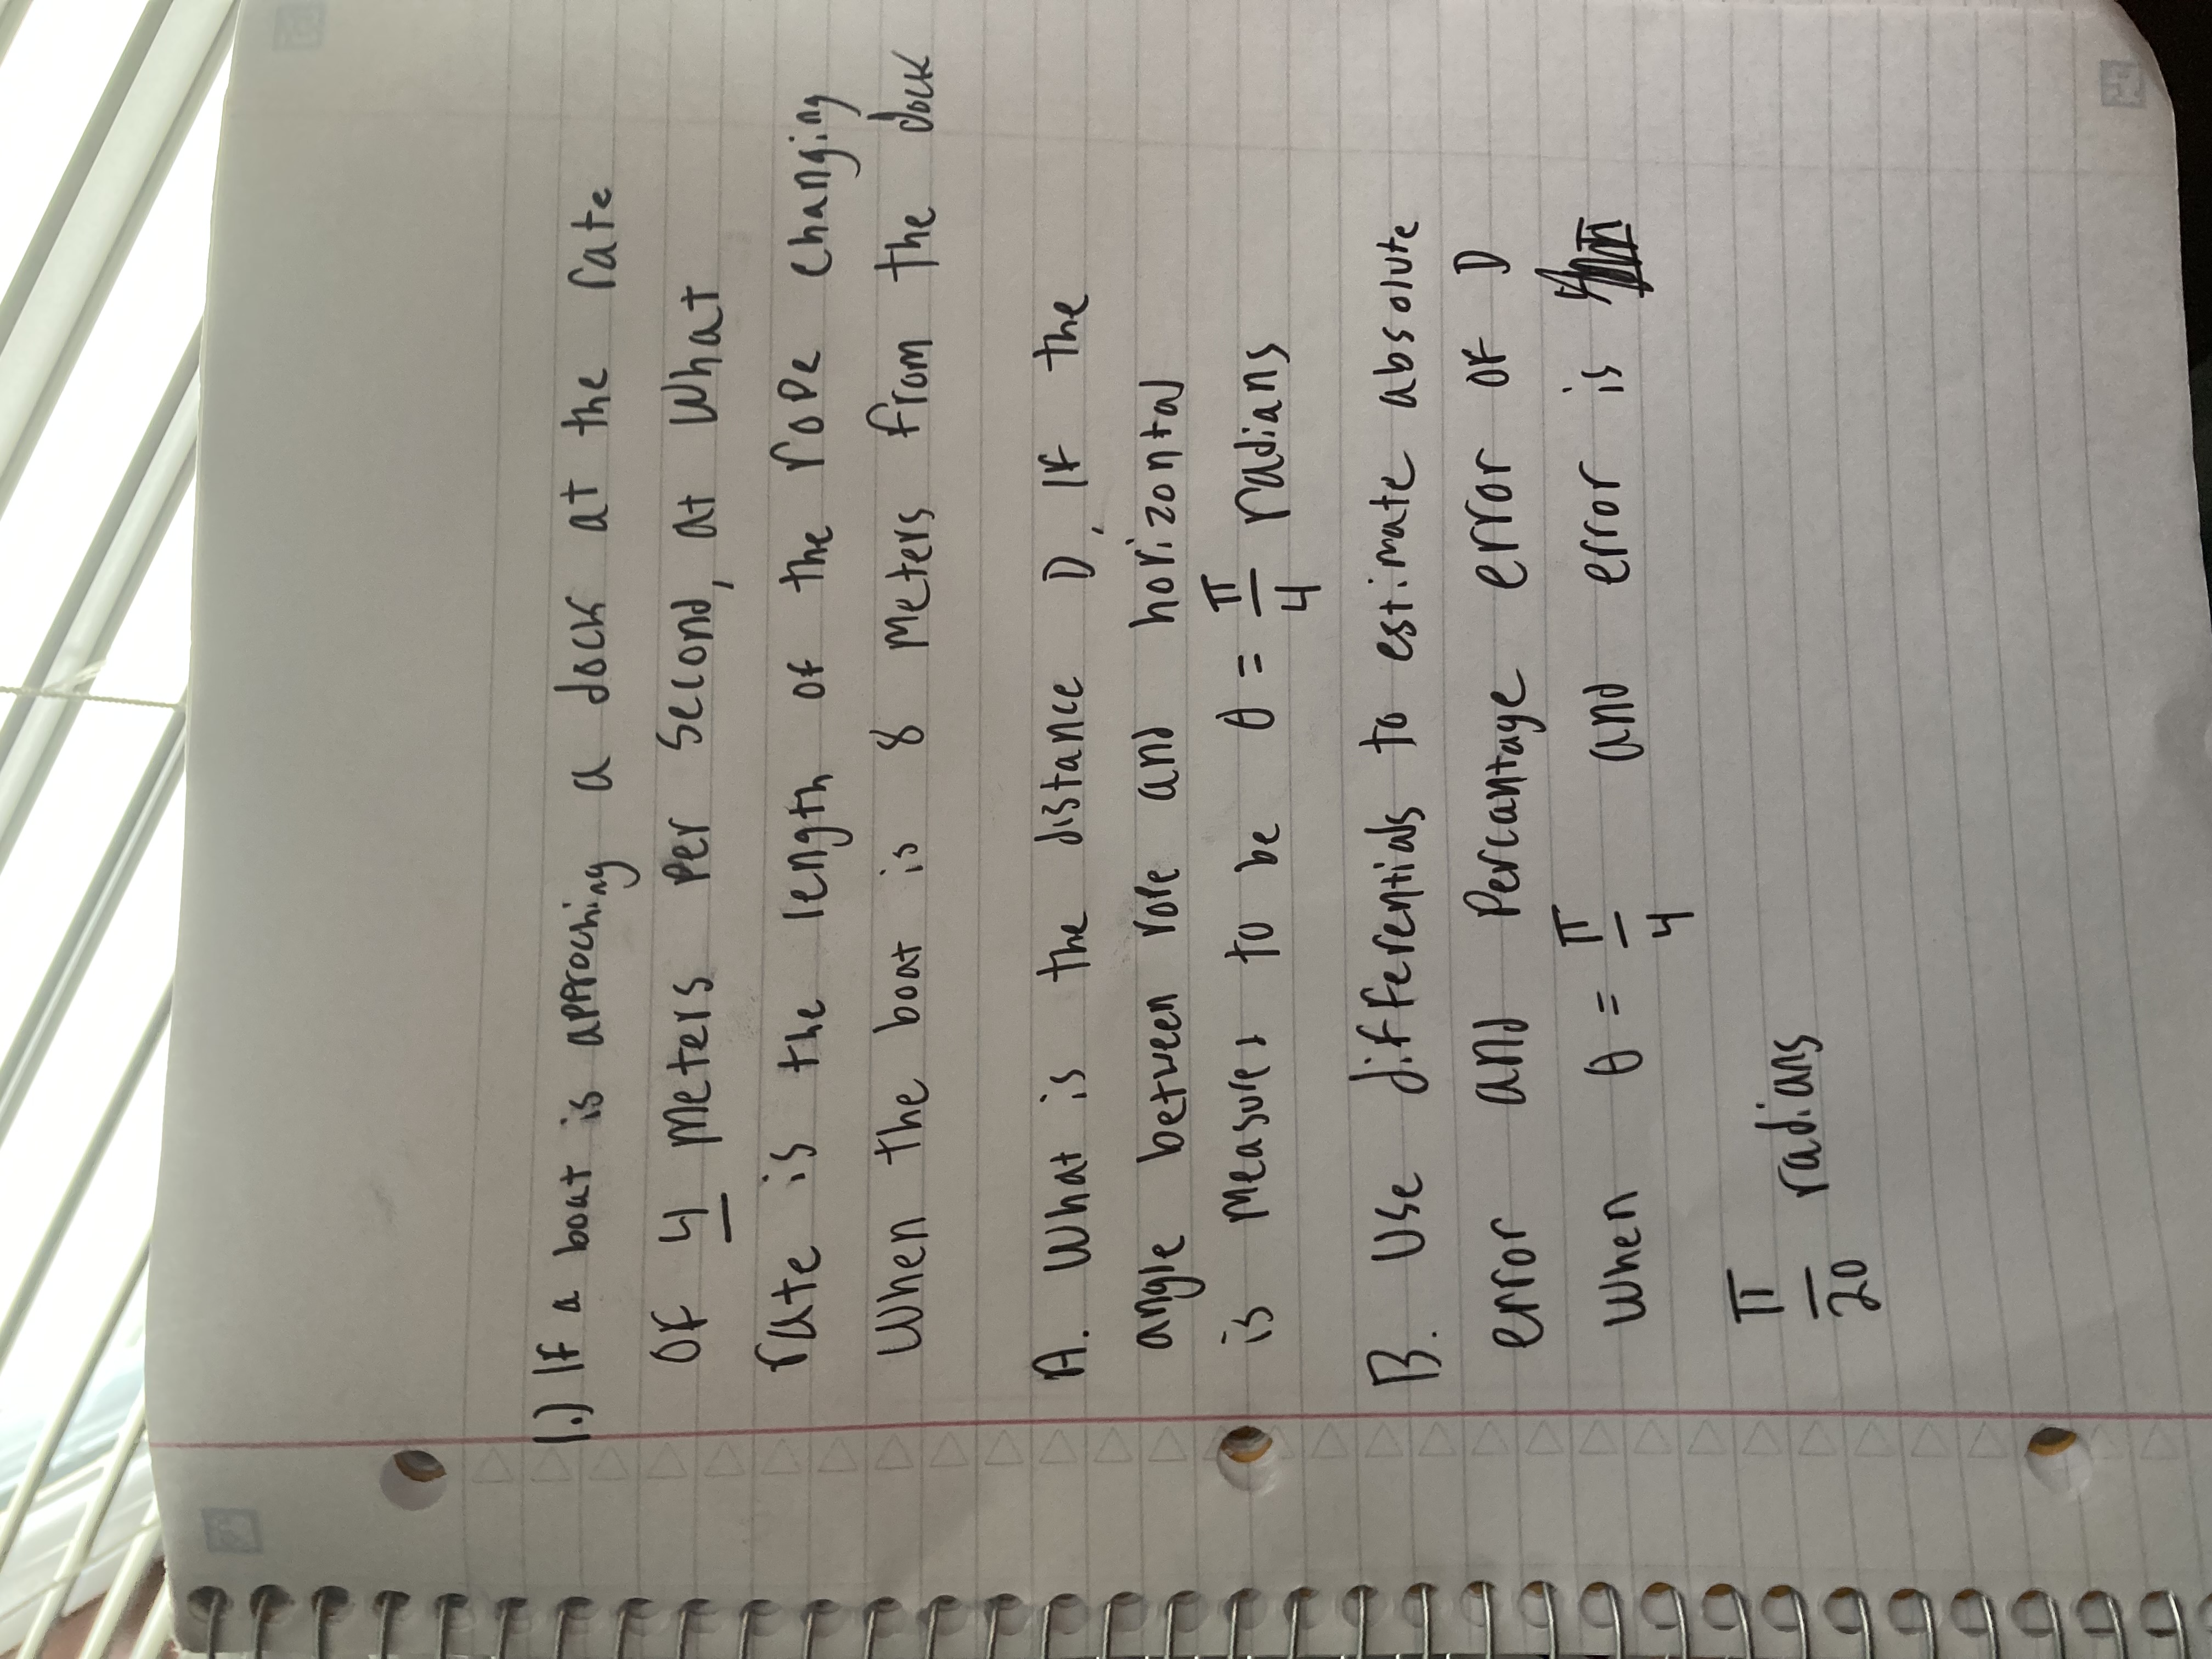 1.) If a boat is approching a dock at the rate
of 4 meters per second, at what
rate is the length of the rope changing
When the boat is 8 meters from the dock
A. What is the distance D, If the
angle between rope and horizontal
is measures to be θ = π/4 radians
B. Use differentials to estimate absolute
error and Percantage error of D
When θ = π/4 and error is
π/20 radians